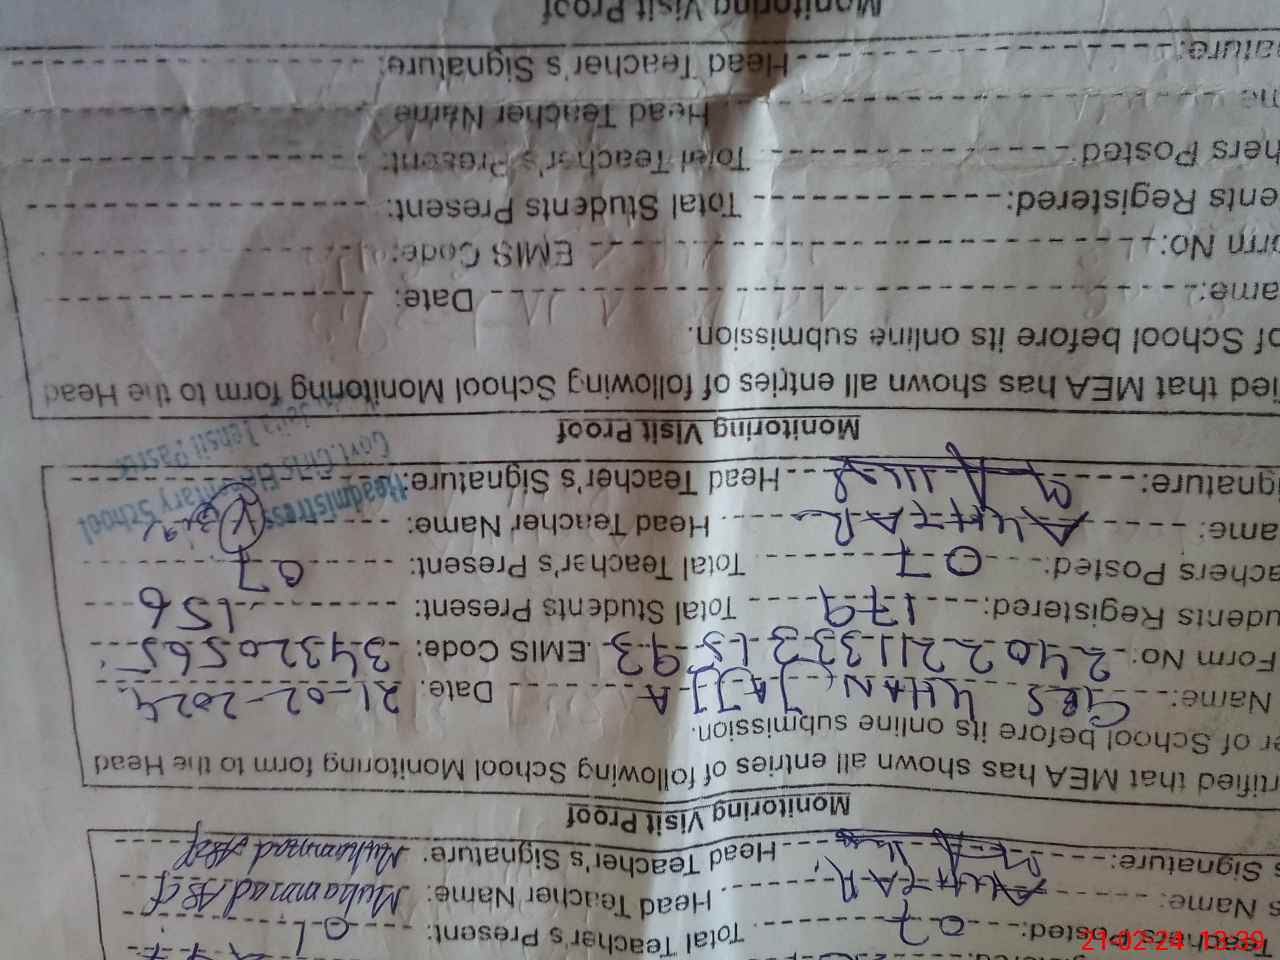 Teachers Posted: 07 Total Teacher's Present: 01
s Name: AKHTAR Head Teacher Name: Muhammad Asif
s Signature: Head Teacher's Signature: Muhammad Asif
Monitoring Visit Proof
rtified that MEA has shown all entries of following School Monitoring School Monitoring form to the Head
er of School before its online submission.
Name: GES KHAN JAJJA Date: 21-02-2024
Form No: 2402211333 1593 EMIS Code: 34320565
udents Registered: 179 Total Students Present: 156
achers Posted: 07 Total Teacher's Present: 07
ame: AKHTAR Head Teacher Name:
ignature: Head Teacher's Signature:
Headmistress
Govt. Girls Elementary School
Monitoring Visit Proof
ied that MEA has shown all entries of following School Monitoring School Monitoring form to the Head
of School before its online submission.
ame: Date:
orm No: EMIS Code:
ents Registered: Total Students Present:
hers Posted: Total Teacher's Present:
me Head Teacher Name
ature: Head Teacher's Signature:
Monitoring Visit Proof
21-02-24 13:39